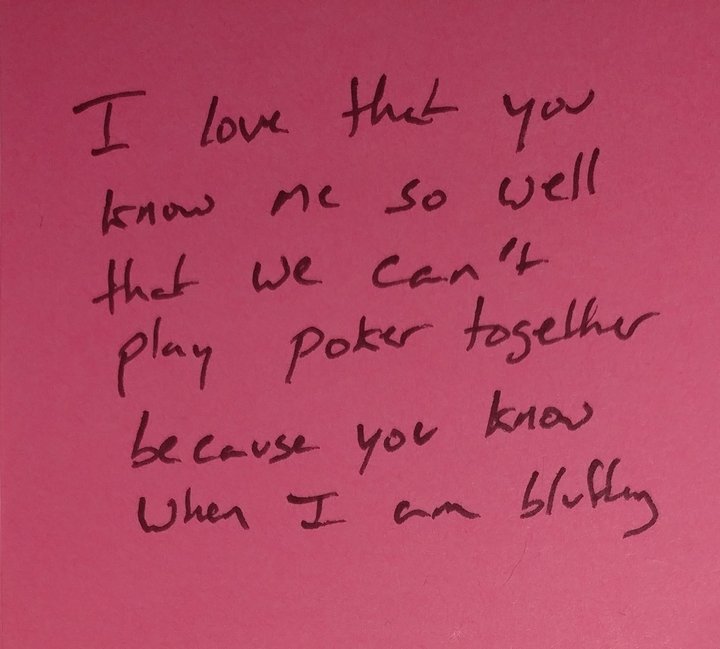 I love that you
know me so well
that we can't
play poker together
because you know
when I am bluffing